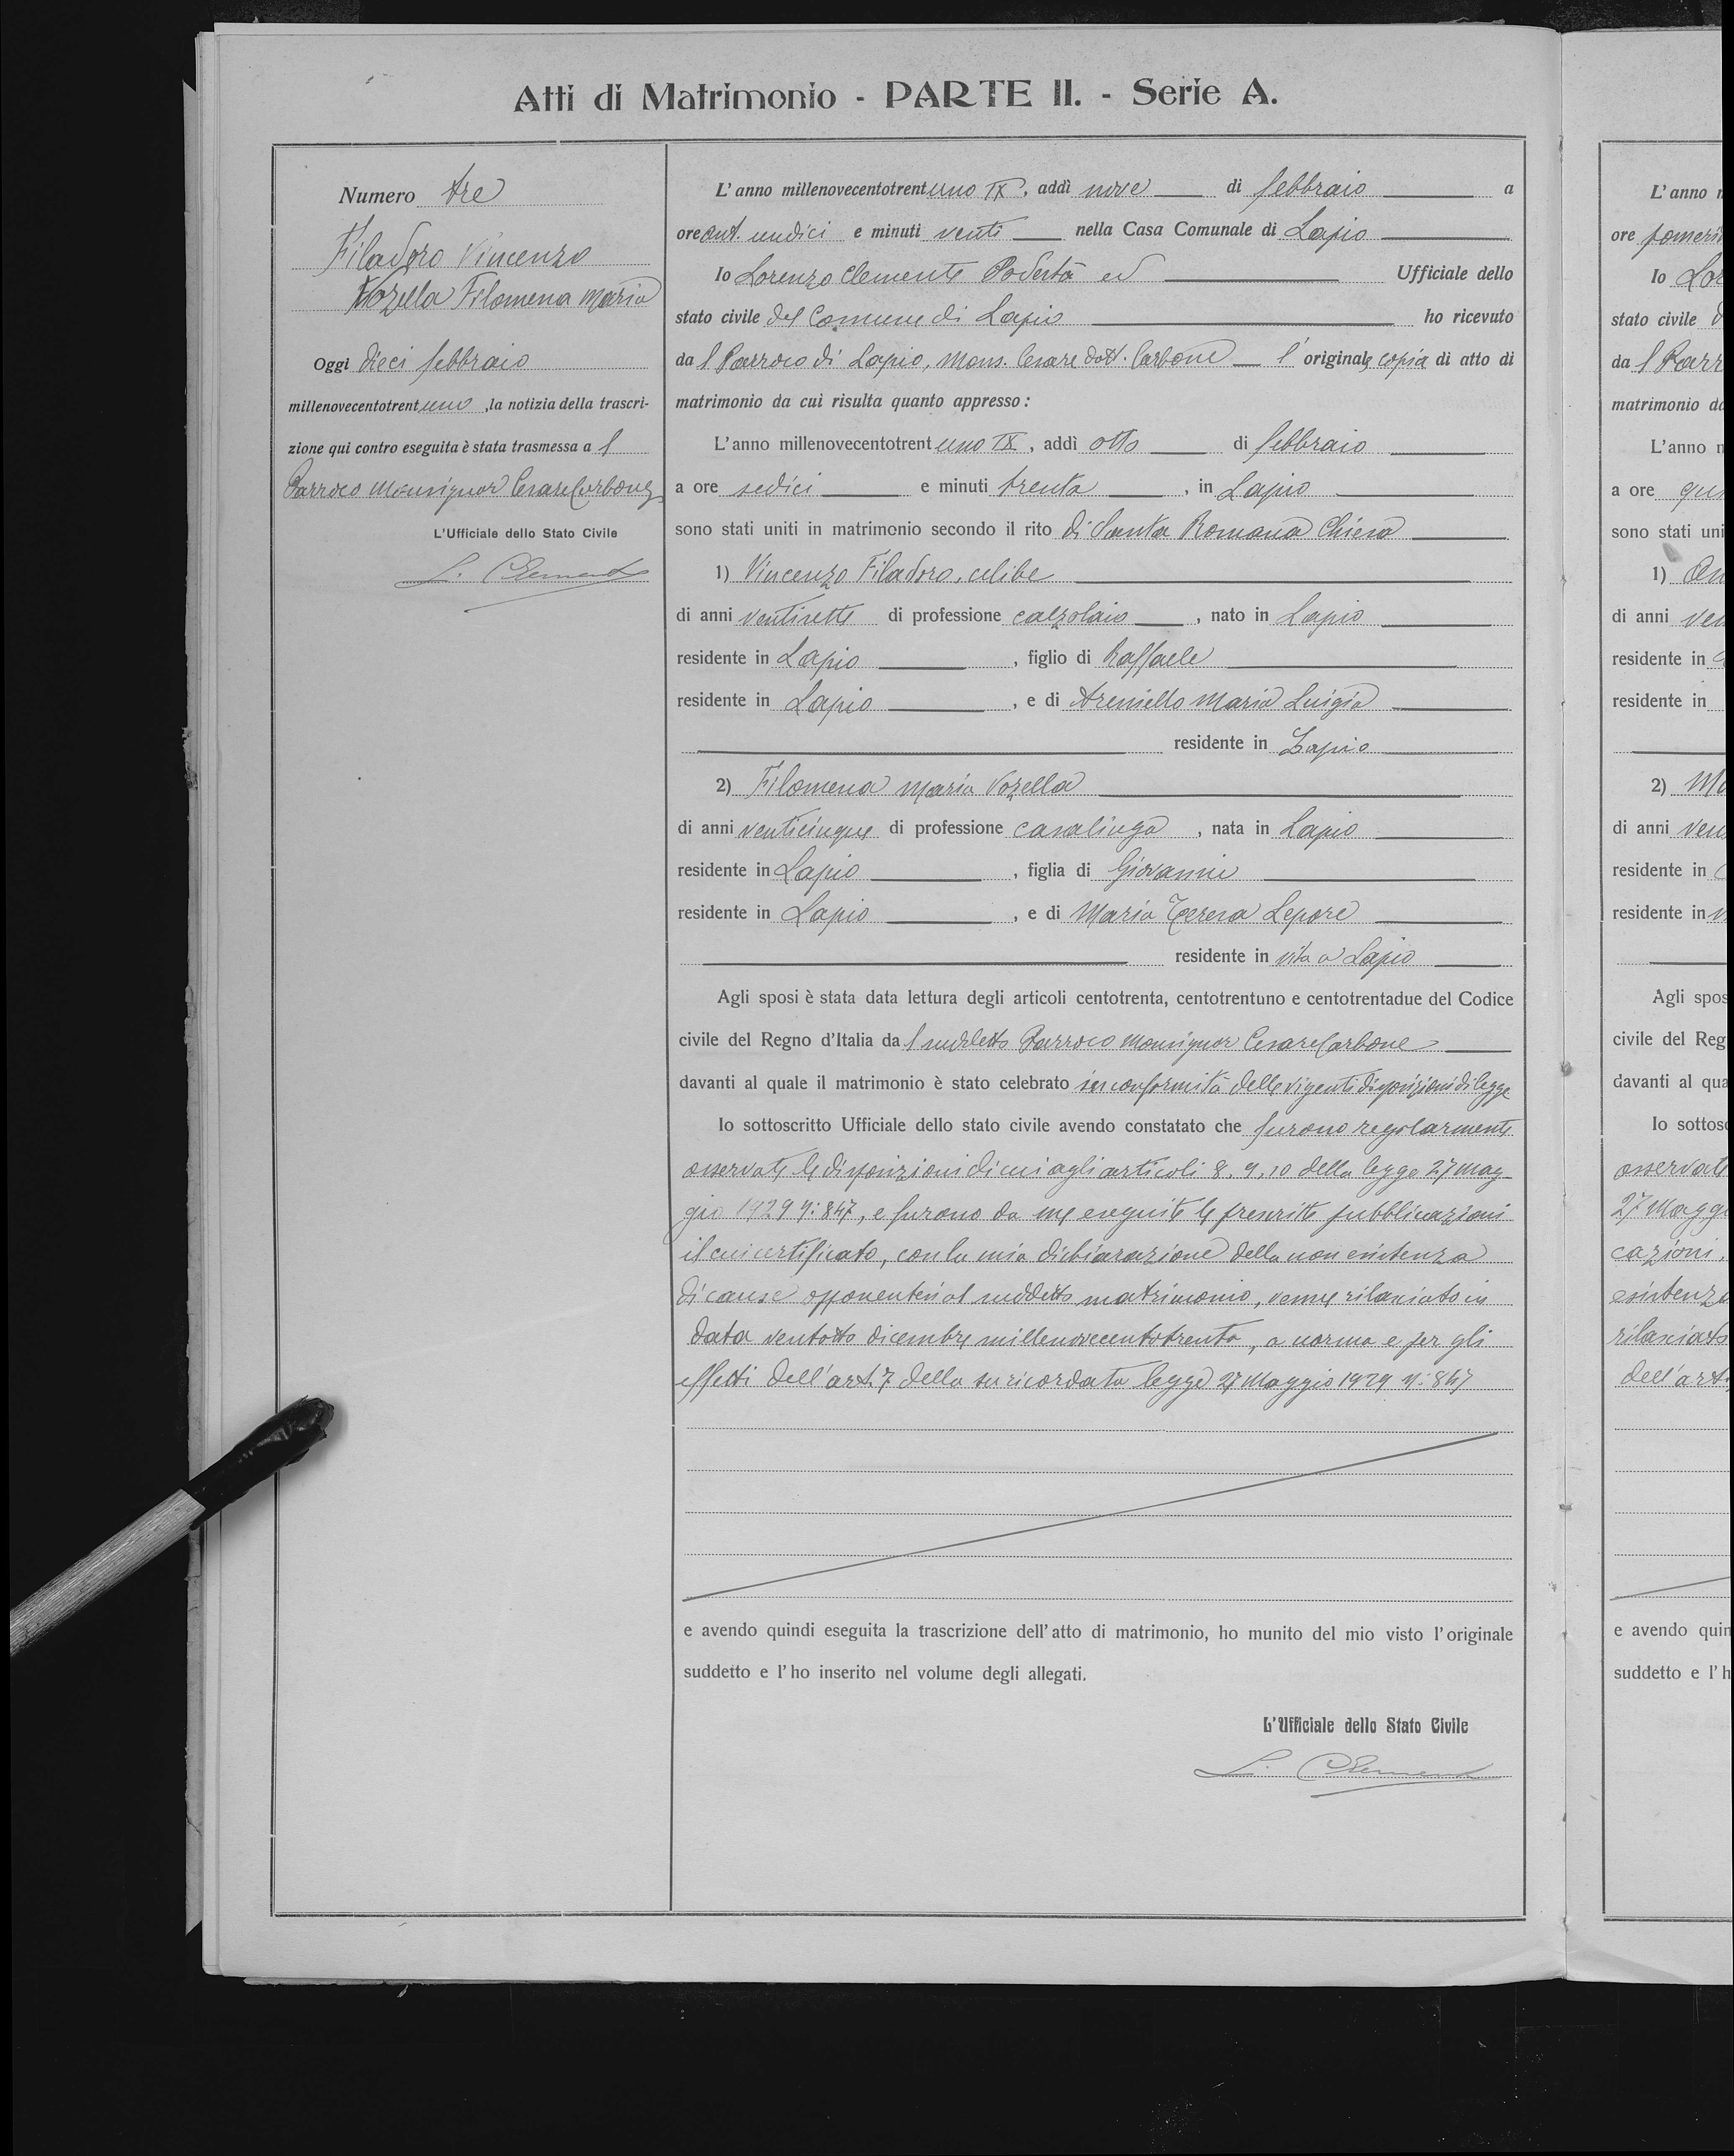 Atti di Matrimonio - PARTE II. - Serie A.
Numero tre
Filadoro Vincenzo
Vozella Filomena Maria
Oggi dieci febbraio
millenovecentotrentuno, la notizia della trascri-
zione qui contro eseguita è stata trasmessa al
Parroco Monsignor Cesare Carbone
L'Ufficiale dello Stato Civile
L. Clemente
L'anno millenovecentotrentuno IX, addì nove di febbraio a
ore ant. undici e minuti venti nella Casa Comunale di Lapio
Io Lorenzo Clemente Podestà ed Ufficiale dello
stato civile del Comune di Lapio ho ricevuto
dal Parroco di Lapio, Mons. Cesare dott. Carbone l'originale copia di atto di
matrimonio da cui risulta quanto appresso:
L'anno millenovecentotrentuno IX, addì otto di febbraio
a ore sedici e minuti trenta, in Lapio
sono stati uniti in matrimonio secondo il rito di Santa Romana Chiesa
1) Vincenzo Filadoro, celibe
di anni ventisette di professione calzolaio, nato in Lapio
residente in Lapio, figlio di Raffaele
residente in Lapio, e di Areniello Maria Luigia
residente in Lapio
2) Filomena Maria Vozella
di anni venticinque di professione casalinga, nata in Lapio
residente in Lapio, figlia di Giovanni
residente in Lapio, e di Maria Teresa Lepore
residente in vita a Lapio
Agli sposi è stata data lettura degli articoli centotrenta, centotrentuno e centotrentadue del Codice
civile del Regno d'Italia dal suddetto Parroco Monsignor Cesare Carbone
davanti al quale il matrimonio è stato celebrato in conformità delle vigenti disposizioni di legge
Io sottoscritto Ufficiale dello stato civile avendo constatato che furono regolarmente
osservate le disposizioni di cui agli articoli 8, 9, 10 della legge 27 mag-
gio 1929 N: 847, e furono da me eseguite le prescritte pubblicazioni
il cui certificato, con la mia dichiarazione della non esistenza
di cause opponentesi al suddetto matrimonio, venne rilasciato in
data ventotto dicembre millenovecentotrenta, a norma e per gli
effetti dell'art. 7 della su ricordata legge 27 Maggio 1929 N: 847
e avendo quindi eseguita la trascrizione dell'atto di matrimonio, ho munito del mio visto l'originale
suddetto e l'ho inserito nel volume degli allegati.
L'Ufficiale dello Stato Civile
L. Clemente
L'anno
ore pomeri
Io Lor
stato civile
da l Parr
matrimonio da
L'anno
a ore
sono stati uni
1)
di anni
residente in
residente in
2) Ma
di anni
residente in
residente in
Agli spos
civile del Reg
davanti al qua
Io sottosc
osservate
27 Maggi
cazioni,
esistenza
rilasciato
dell'art.
e avendo quin
suddetto e l'h